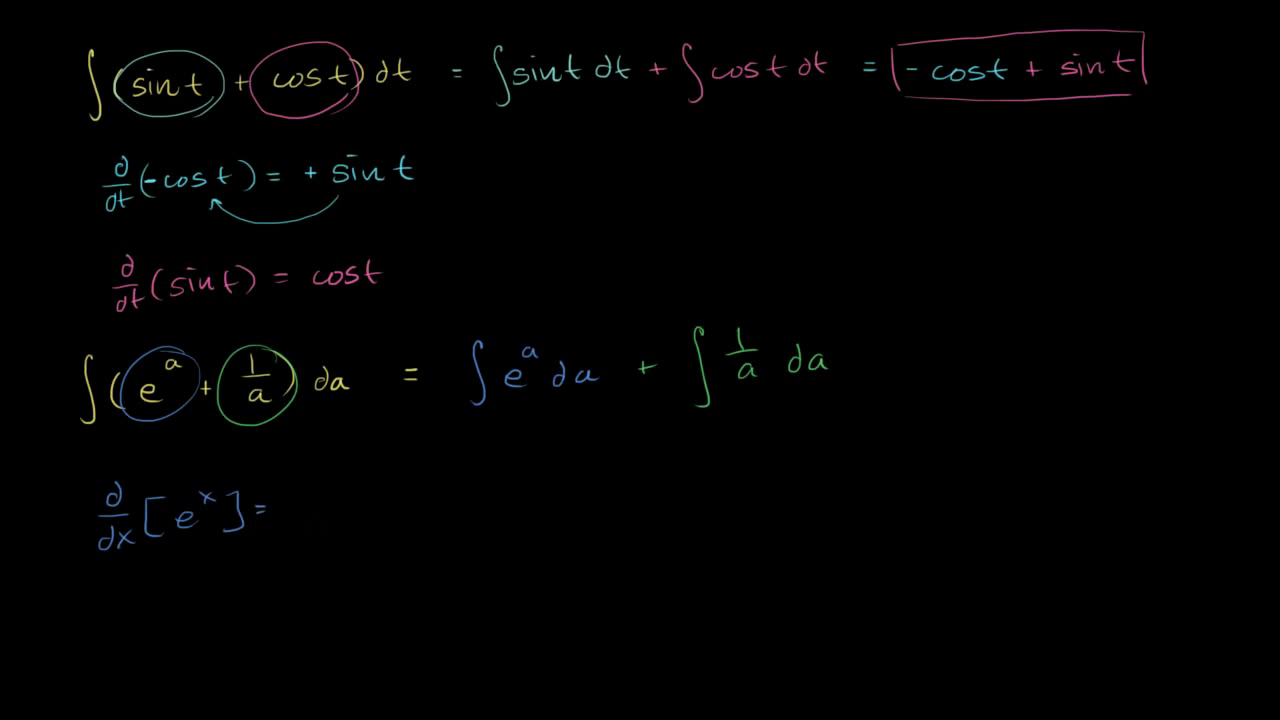 ∫ (sin t + cos t) dt = ∫ sin t dt + ∫ cos t dt = - cos t + sin t
d/dt (-cos t) = + sin t
d/dt (sin t) = cos t
∫ (e^a + 1/a) da = ∫ e^a da + ∫ 1/a da
d/dx [e^x] =